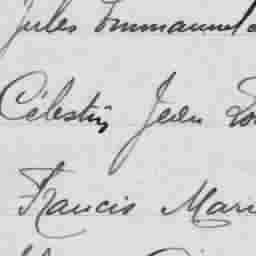 Jules Emmanuel
Célestin Jean
Francis Mari